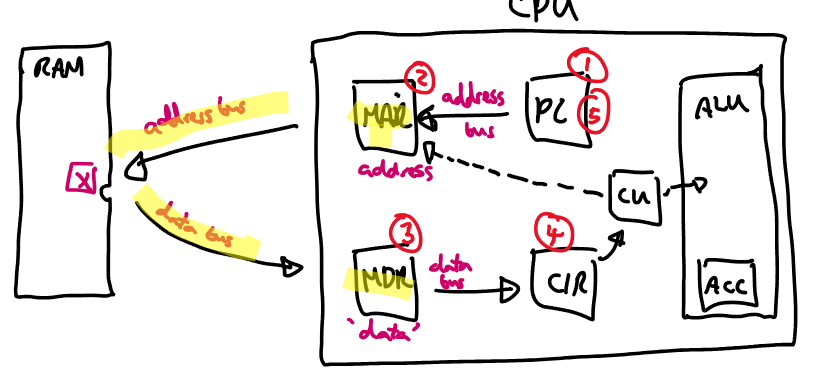 CPU
RAM
address bus
X
data bus
2
MAR
address
address
bus
1
PC
5
ALU
CU
3
MDR
'data'
data
bus
4
CIR
ACC